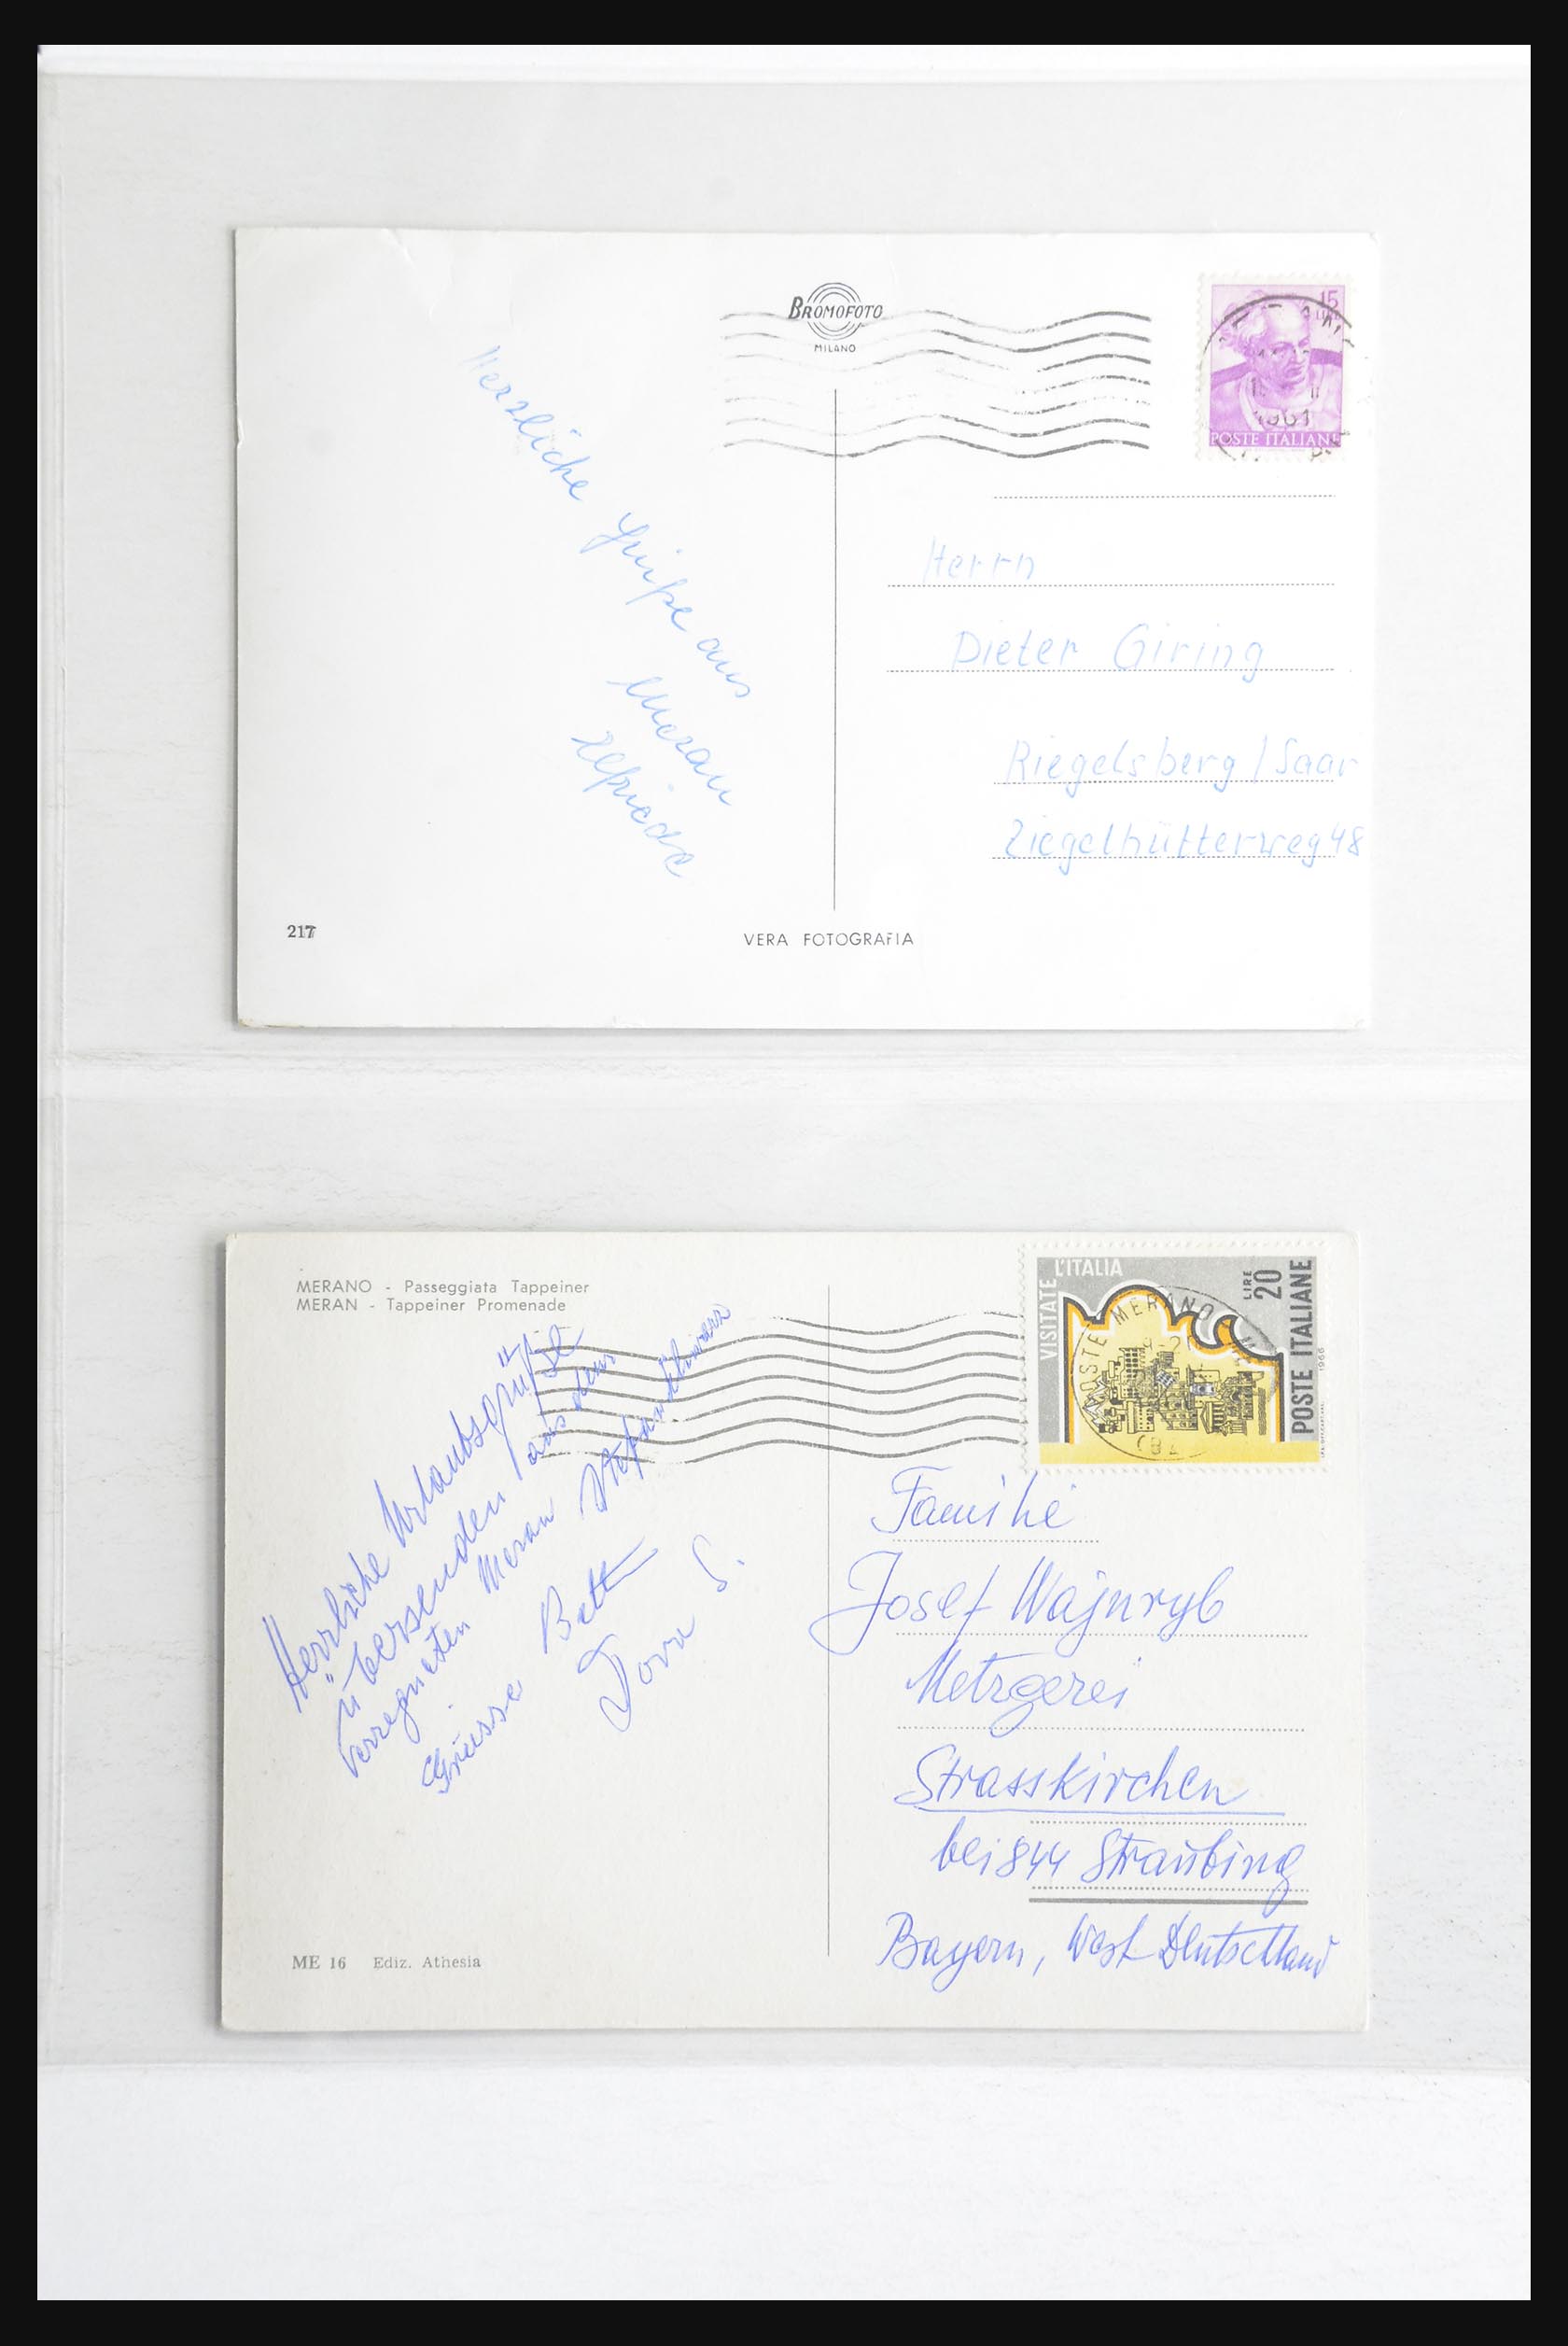 BROMOFOTO
MILANO
15
LIRE
1961
POSTE ITALIANE
Herzliche Grüße aus
Meran
Elfriede
Herrn
Dieter Giring
Riegelsberg / Saar
Ziegelhütterweg 48
217
VERA FOTOGRAFIA
MERANO - Passeggiata Tappeiner
MERAN - Tappeiner Promenade
VISITATE L'ITALIA
LIRE 20
POSTE ITALIANE
1966
POSTE MERANO
Herrliche Urlaubsgrüße
übersenden aus dem
verregneten Meran
Grüsse
Dora S.
Familie
Josef Wajnryb
Metzgerei
Strasskirchen
bei 844 Straubing
Bayern, West Deutschland
ME 16 Ediz. Athesia